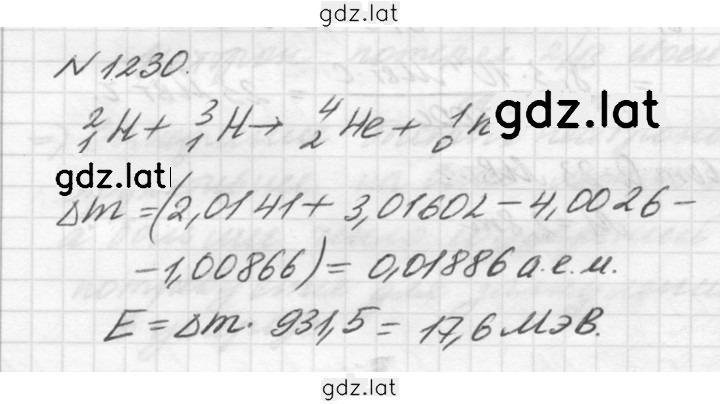 gdz.lat
N1230.
²₁H + ³₁H → ⁴₂He + ¹₀n
gdz.lat
gdz.lat
Δm = (2,0141 + 3,01602 - 4,0026 -
- 1,00866) = 0,01886 а.е.м.
E = Δm · 931,5 = 17,6 МэВ.
gdz.lat